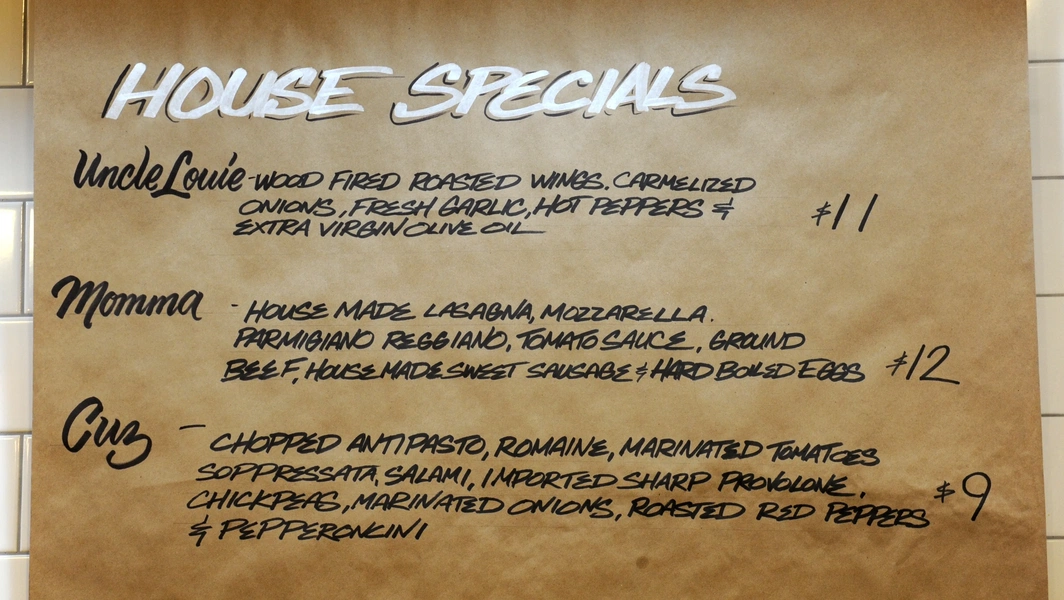 HOUSE SPECIALS
Uncle Louie - WOOD FIRED ROASTED WINGS. CARMELIZED
ONIONS, FRESH GARLIC, HOT PEPPERS &
EXTRA VIRGIN OLIVE OIL
$11
Momma - HOUSE MADE LASAGNA, MOZZARELLA.
PARMIGIANO REGGIANO, TOMATO SAUCE, GROUND
BEEF, HOUSE MADE SWEET SAUSAGE & HARD BOILED EGGS $12
Cuz - CHOPPED ANTIPASTO, ROMAINE, MARINATED TOMATOES
SOPPRESSATA, SALAMI, IMPORTED SHARP PROVOLONE,
CHICKPEAS, MARINATED ONIONS, ROASTED RED PEPPERS $9
& PEPPERONCINI